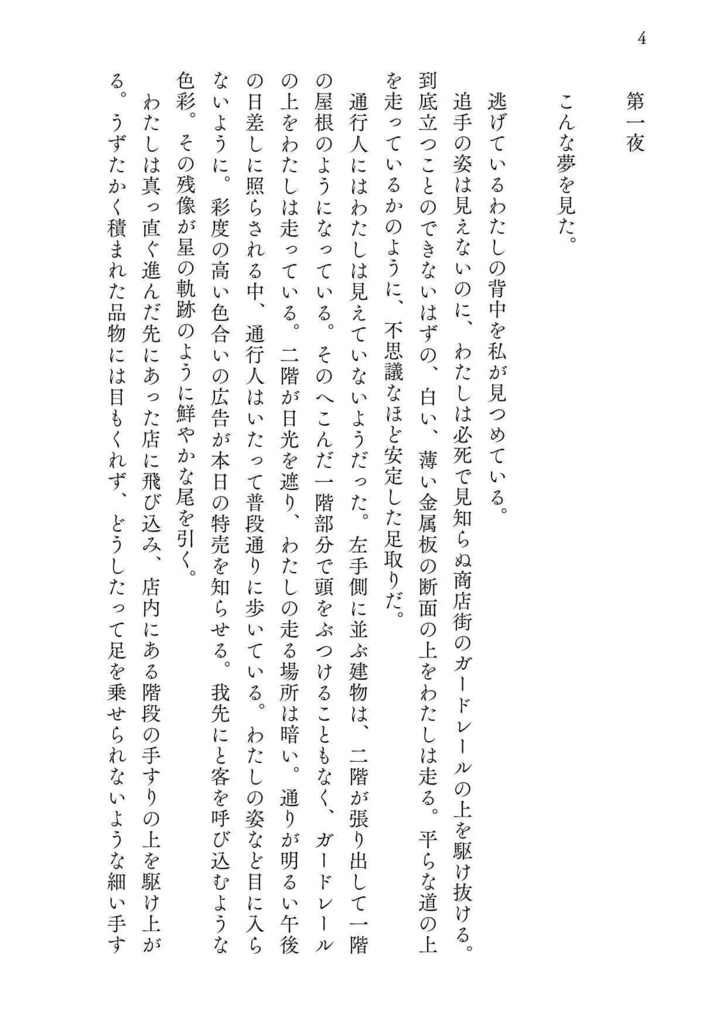 4
第一夜
こんな夢を見た。
逃げているわたしの背中を私が見つめている。
追手の姿は見えないのに、わたしは必死で見知らぬ商店街のガードレールの上を駆け抜ける。
到底立つことのできないはずの、白い、薄い金属板の断面の上をわたしは走る。平らな道の上
を走っているかのように、不思議なほど安定した足取りだ。
通行人にはわたしは見えていないようだった。左手側に並ぶ建物は、二階が張り出して一階
の屋根のようになっている。そのへこんだ一階部分で頭をぶつけることもなく、ガードレール
の上をわたしは走っている。二階が日光を遮り、わたしの走る場所は暗い。通りが明るい午後
の日差しに照らされる中、通行人はいたって普段通りに歩いている。わたしの姿など目に入ら
ないように。彩度の高い色合いの広告が本日の特売を知らせる。我先にと客を呼び込むような
色彩。その残像が星の軌跡のように鮮やかな尾を引く。
わたしは真っ直ぐ進んだ先にあった店に飛び込み、店内にある階段の手すりの上を駆け上が
る。うずたかく積まれた品物には目もくれず、どうしたって足を乗せられないような細い手す